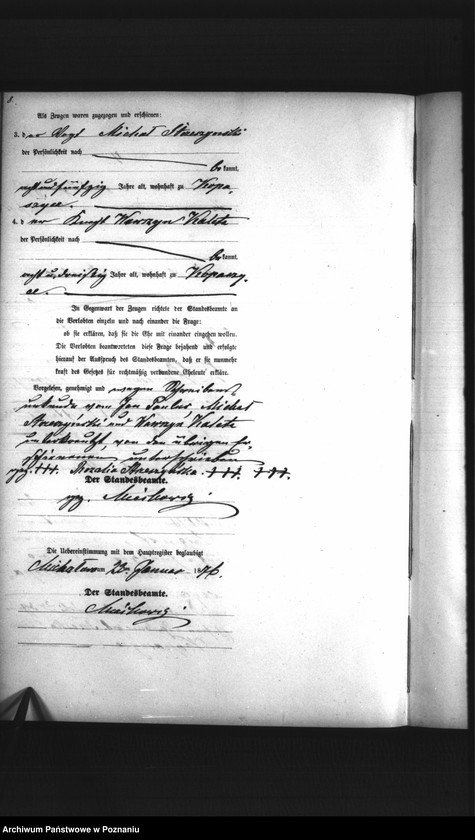 8.
Als Zeugen waren zugezogen und erschienen:
3. der Vogt Michal Skrzypński
der Persönlichkeit nach
bekannt,
acht und fünfzig Jahre alt, wohnhaft zu Kopa-
szyce.
4. der Knecht Wawrzyn
der Persönlichkeit nach
bekannt,
acht u. dreißig Jahre alt, wohnhaft zu Kopaszy-
ce.
In Gegenwart der Zeugen richtete der Standesbeamte an
die Verlobten einzeln und nach einander die Frage:
ob sie erklären, daß sie die Ehe mit einander eingehen wollen.
Die Verlobten beantworteten diese Frage bejahend und erfolgte
hierauf der Ausspruch des Standesbeamten, daß er sie nunmehr
kraft des Gesetzes für rechtmäßig verbundene Eheleute erkläre.
Vorgelesen, genehmigt und wegen Schreibens-
unkunde vom Jan Michal
und Wawrzyn
unterkreuzt, von den übrigen Er-
schienenen unterschrieben
gez. +++. Rozalia +++. +++.
Der Standesbeamte.
gez.
Die Uebereinstimmung mit dem Hauptregister beglaubigt
am 23ten Januar 1876.
Der Standesbeamte.
Archiwum Państwowe w Poznaniu